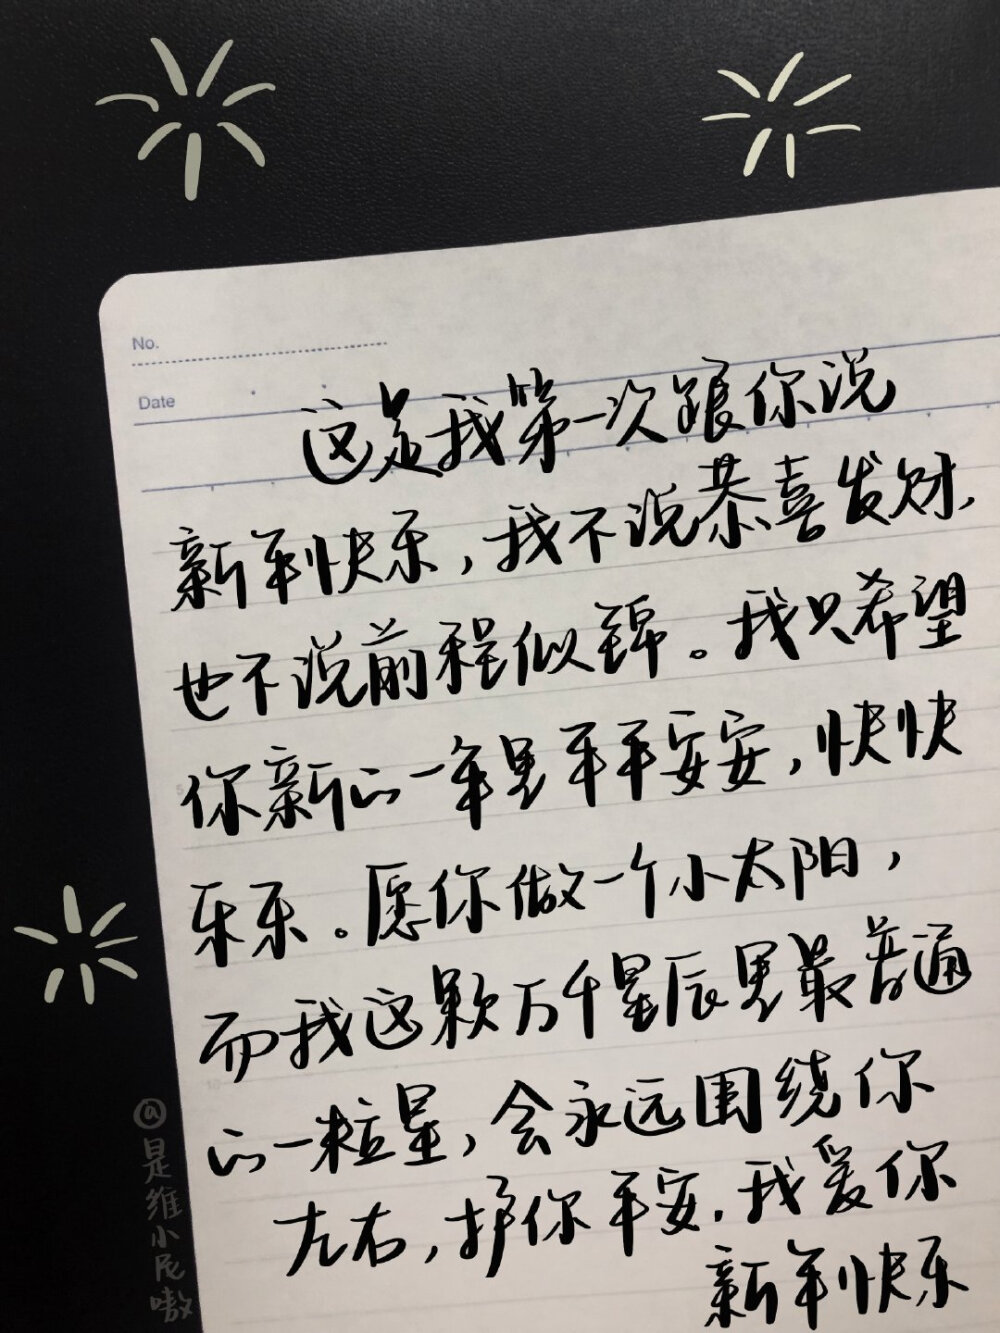 No.
Date
这是我第一次跟你说
新年快乐,我不说恭喜发财,
也不说前程似锦。我只希望
你新的一年里平平安安,快快
乐乐。愿你做一个小太阳,
而我这颗万千星辰里最普通
的一粒星,会永远围绕你
左右,护你平安.我爱你
新年快乐
@是维小尼嗷